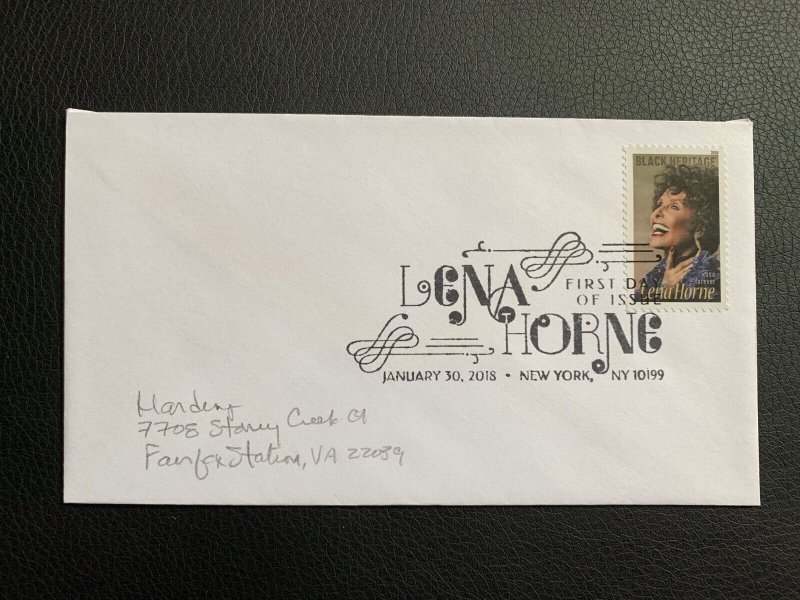 BLACK HERITAGE
USA
forever
Lena Horne
LENA
HORNE
FIRST DAY
OF ISSUE
JANUARY 30, 2018 • NEW YORK, NY 10199
7708 Stoney Creek Ct
Fairfax Station, VA 22039